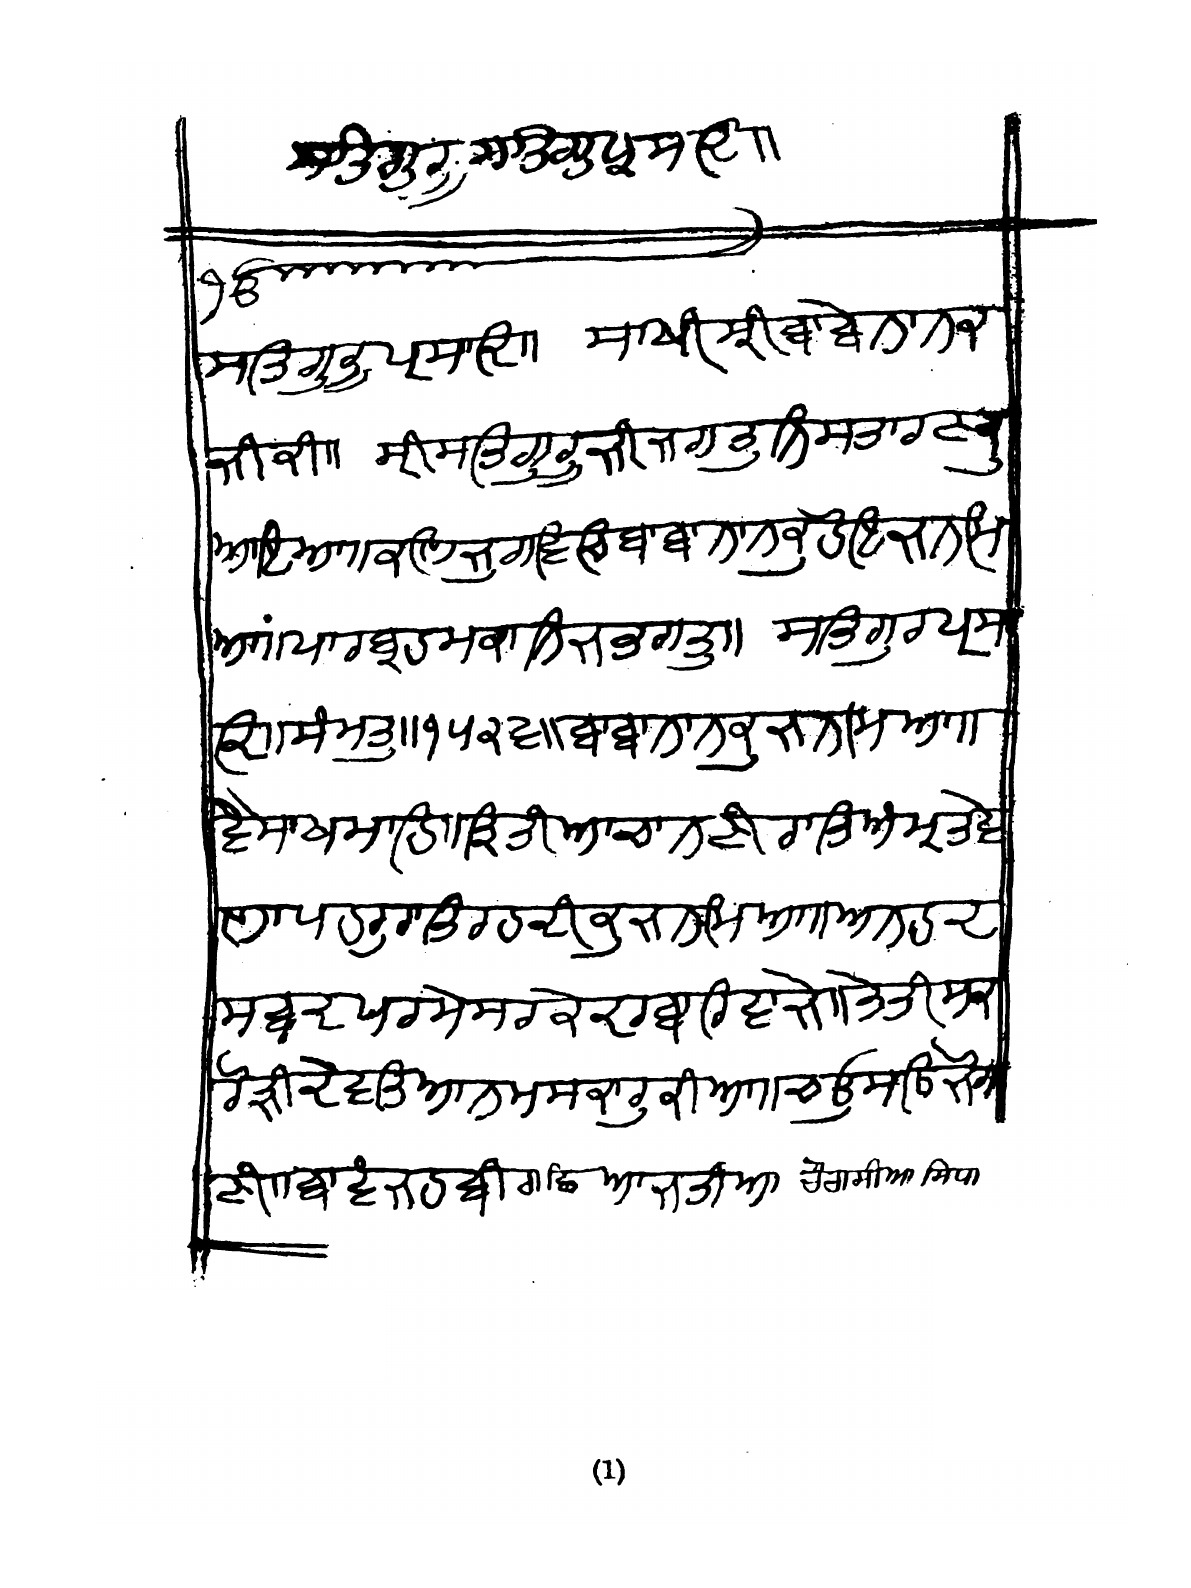 ਸਤਿਗੁਰੂ ਸਤਿਗੁਰਪ੍ਰਸਾਦਿ॥
ੴ
ਸਤਿਗੁਰੂ ਪ੍ਰਸਾਦਿ॥ ਸਾਖੀ ਸ੍ਰੀ ਬਾਬੇ ਨਾਨਕ
ਜੀ ਕੀ॥ ਸ੍ਰੀ ਸਤਿਗੁਰੂ ਜੀ ਜਗਤੁ ਨਿਸਤਾਰਣ ਕਉ
ਆਇਆ ਕਲਿਜੁਗ ਵਿਚਿ ਬਾਬਾ ਨਾਨਕੁ ਹੋਇ ਜਨਮਿ
ਆ॥ ਪਾਰਬ੍ਰਹਮ ਕਾ ਨਿਜ ਭਗਤੁ॥ ਸਤਿਗੁਰ ਪ੍ਰਸਾ
ਦਿ॥ ਸੰਮਤੁ॥੧੫੨੬॥ਬਾਬਾ ਨਾਨਕੁ ਜਨਮਿਆ॥
ਵੈਸਾਖ ਮਾਹਿ॥ ਤ੍ਰਿਤੀਆ ਚਾਨਣੀ ਰਾਤਿ ਅੰਮ੍ਰਤ ਵੇ
ਲਾ ਪਹਰੁ ਰਾਤਿ ਰਹਦੀ ਕੁ ਜਨਮਿਆ॥ ਅਨਹਦ
ਸਬਦ ਪਰਮੇਸਰ ਕੇ ਦਰਬਾਰਿ ਵਾਜੇ॥ ਤੇਤੀਸ ਕ
ਰੋੜੀ ਦੇਵਤਿਆ ਨਮਸਕਾਰੁ ਕੀਆ॥ ਚਉਸਠਿ ਜੋਗ
ਣੀ॥ ਬਾਵੰਜਹ ਬੀਰ ਛਿਅ ਜਤੀਆ ਚੌਰਾਸੀਆ ਸਿਧਾ
(1)